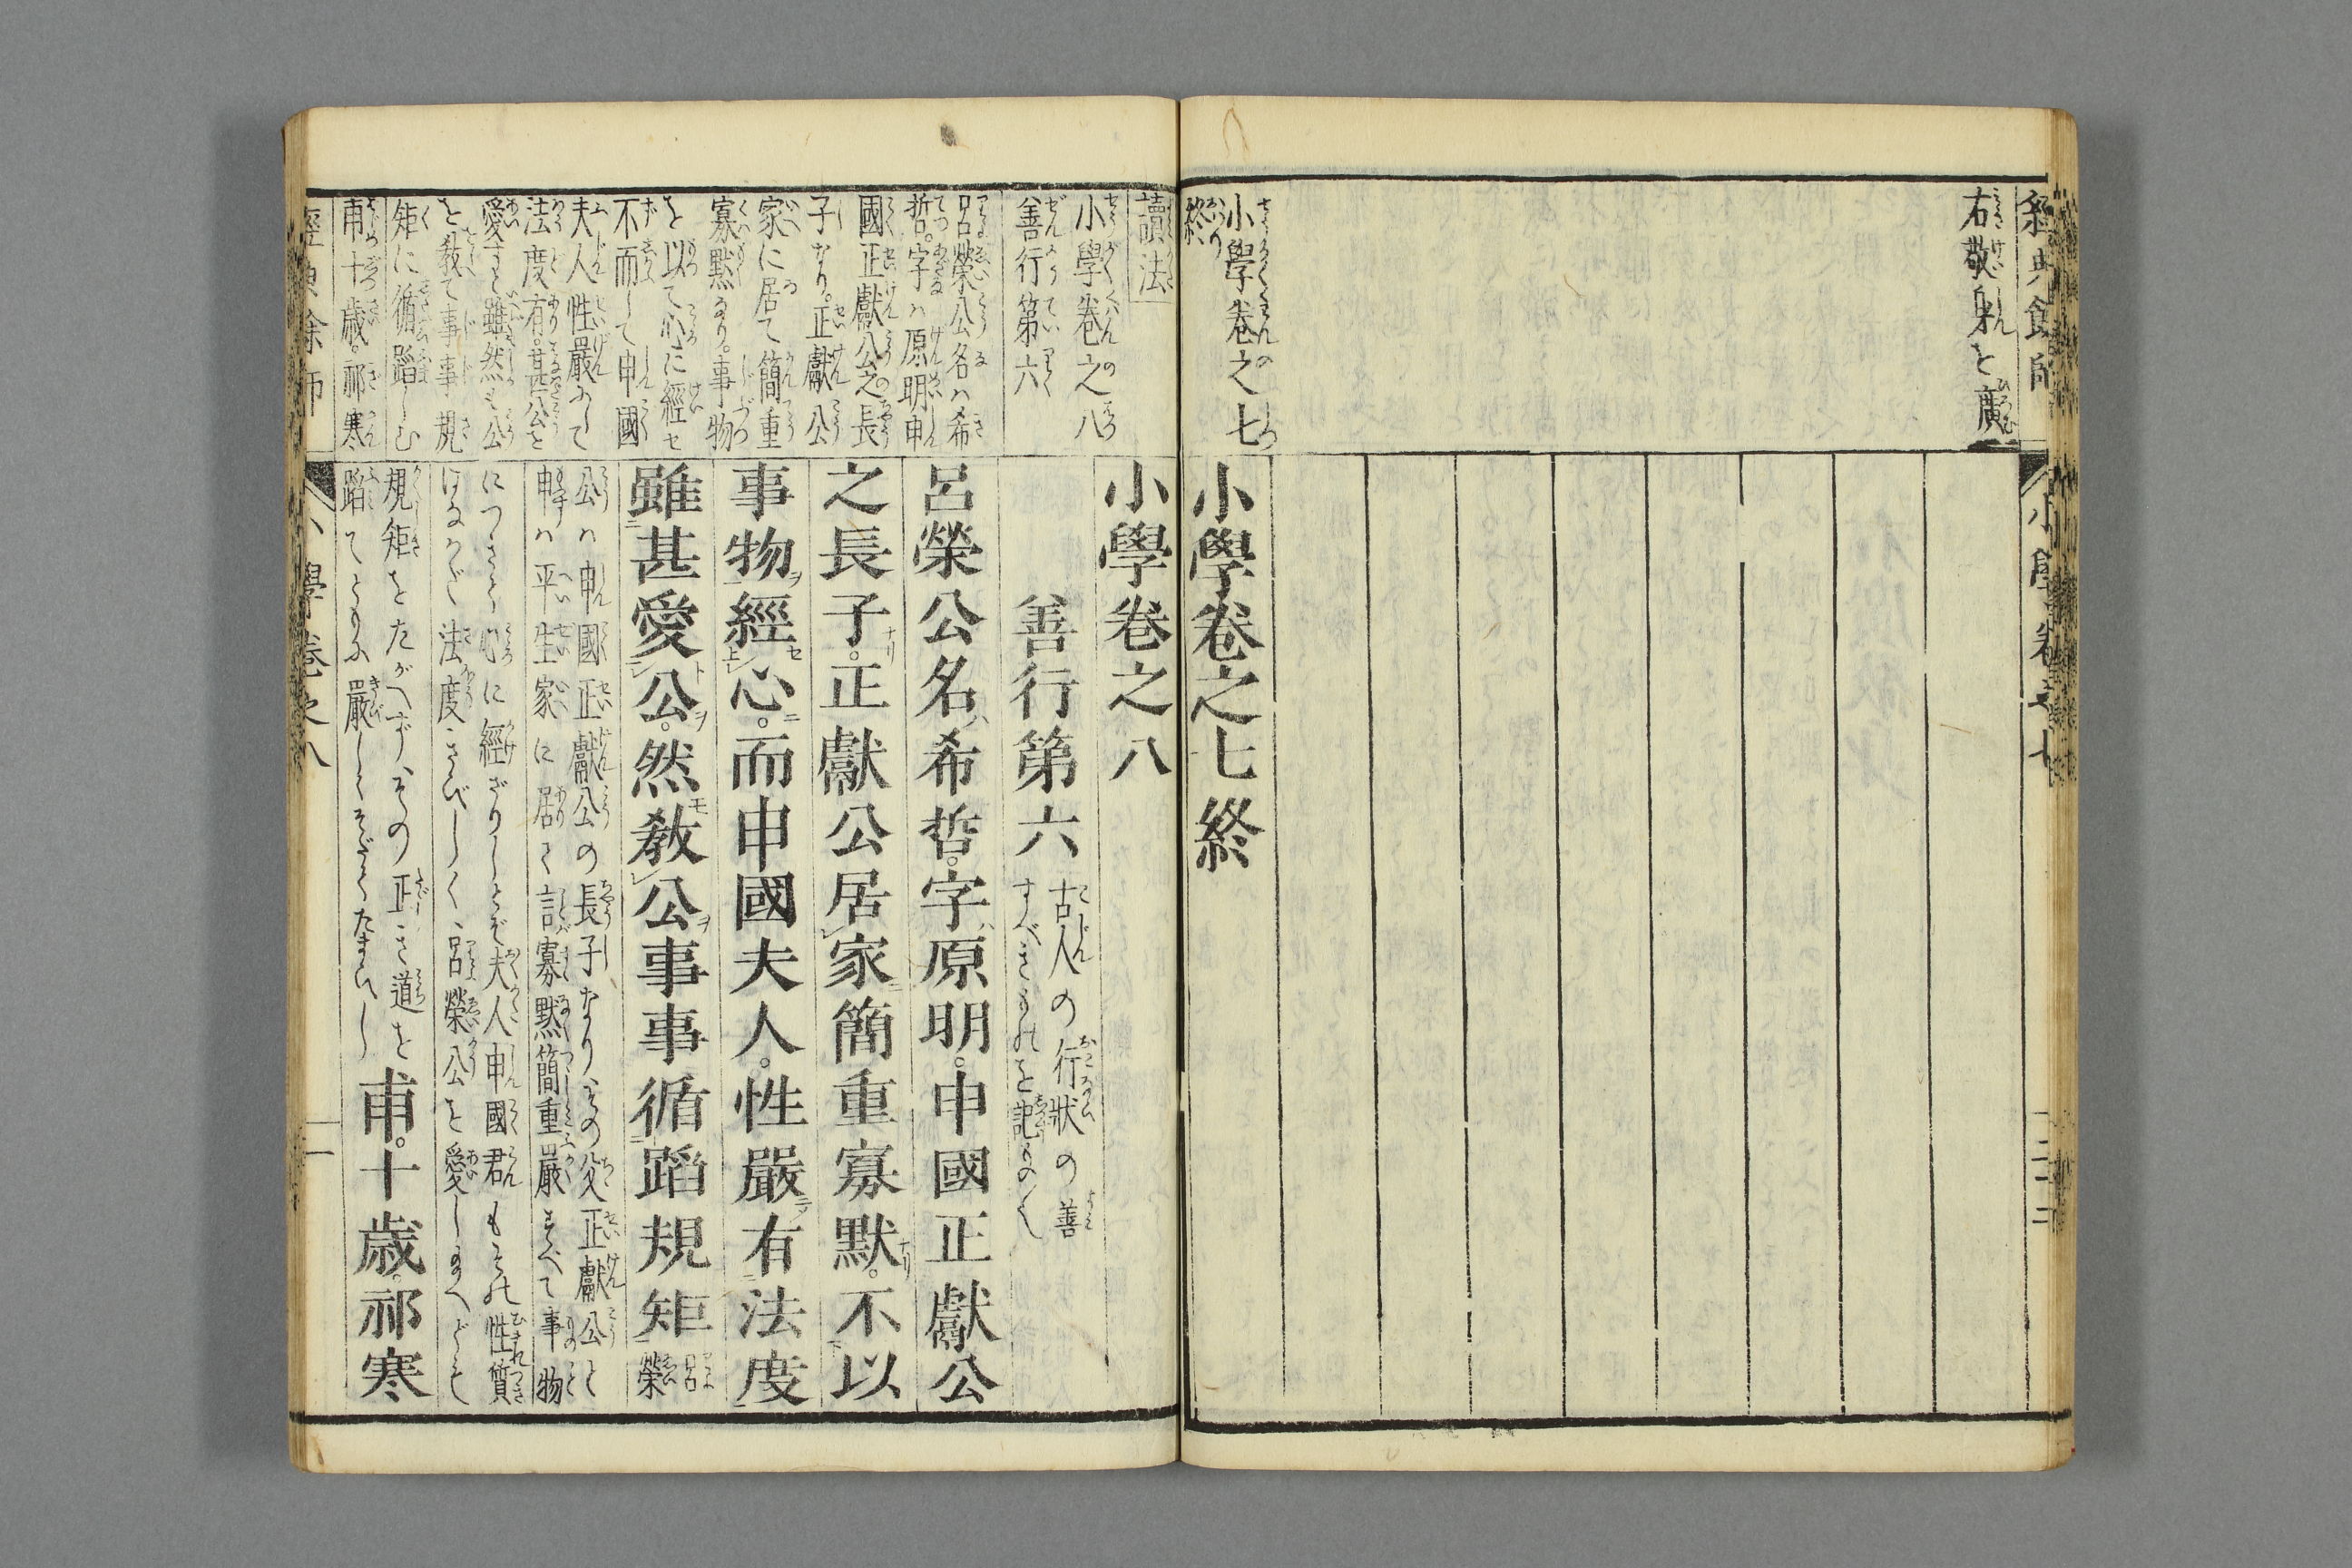 經典餘師
右敬身を廣
小學卷之七
終
小學卷之七
小學卷之七終
讀法
小學卷之八
善行第六
呂榮公名ハ希
哲。字ハ原明申
國正獻公之長
子なり。正獻公
家に居て簡重
寡默なり。事物
を以て心に經セ
不而して申國
夫人性嚴にして
法度有。甚公を
愛すと雖然も公
を教て事事規
矩に循蹈しむ
甫十歳。祁寒
小學卷之八
善行第六
古人の行狀の善
すべきものを記もの也
呂榮公名希哲。字原明。申國正獻公
之長子。正獻公居家簡重寡默。不以
事物經心。而申國夫人。性嚴有法度
雖甚愛公。然教公事事循蹈規矩
呂
榮
公ハ申國正獻公の長子なり、その父正獻公と
申ハ平生家に居て言寡默簡重嚴すべて事物
につきて心に經ざりしとぞ夫人申國君もそれ性質
法度きびしく、呂榮公を愛し
規矩をたがへず、その正き道を
蹈てともに嚴しくそだてたまひし
甫。十歳。祁寒
經典餘師
小學卷之八
一